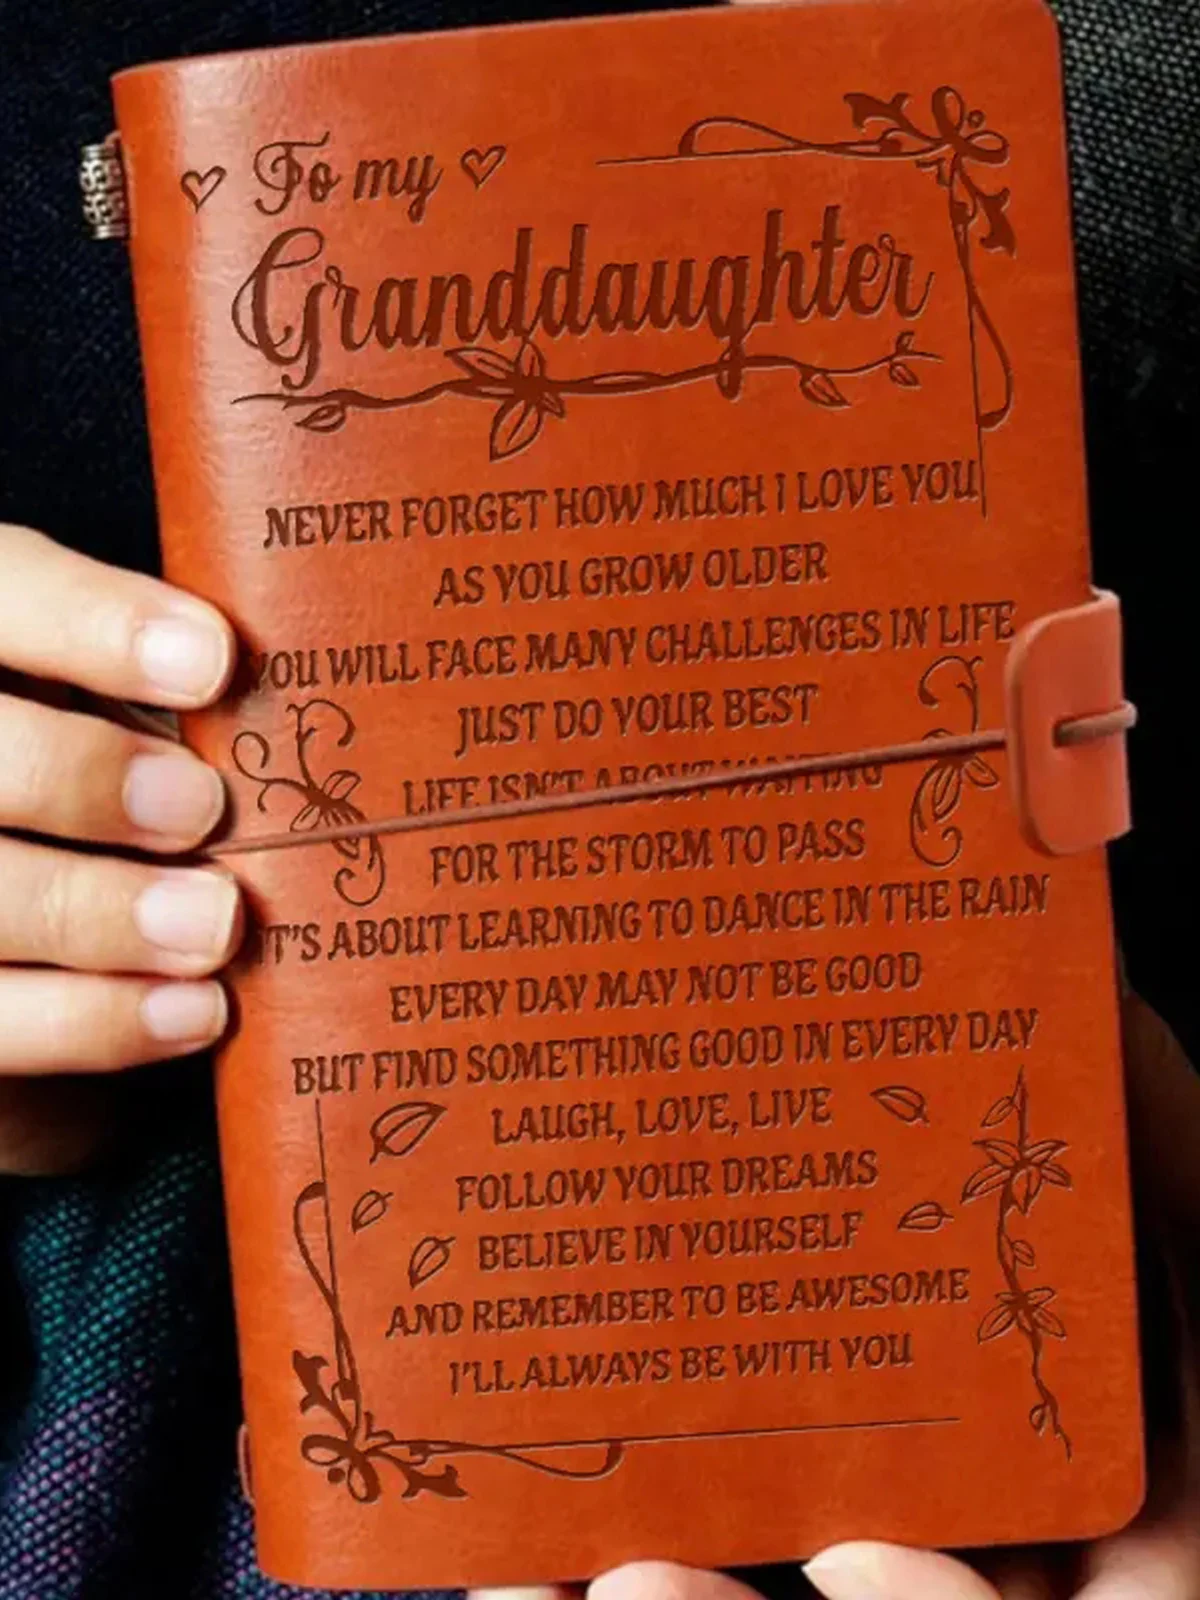 To my
Granddaughter
NEVER FORGET HOW MUCH I LOVE YOU
AS YOU GROW OLDER
YOU WILL FACE MANY CHALLENGES IN LIFE
JUST DO YOUR BEST
LIFE ISN'T ABOUT WAITING
FOR THE STORM TO PASS
IT'S ABOUT LEARNING TO DANCE IN THE RAIN
EVERY DAY MAY NOT BE GOOD
BUT FIND SOMETHING GOOD IN EVERY DAY
LAUGH, LOVE, LIVE
FOLLOW YOUR DREAMS
BELIEVE IN YOURSELF
AND REMEMBER TO BE AWESOME
I'LL ALWAYS BE WITH YOU